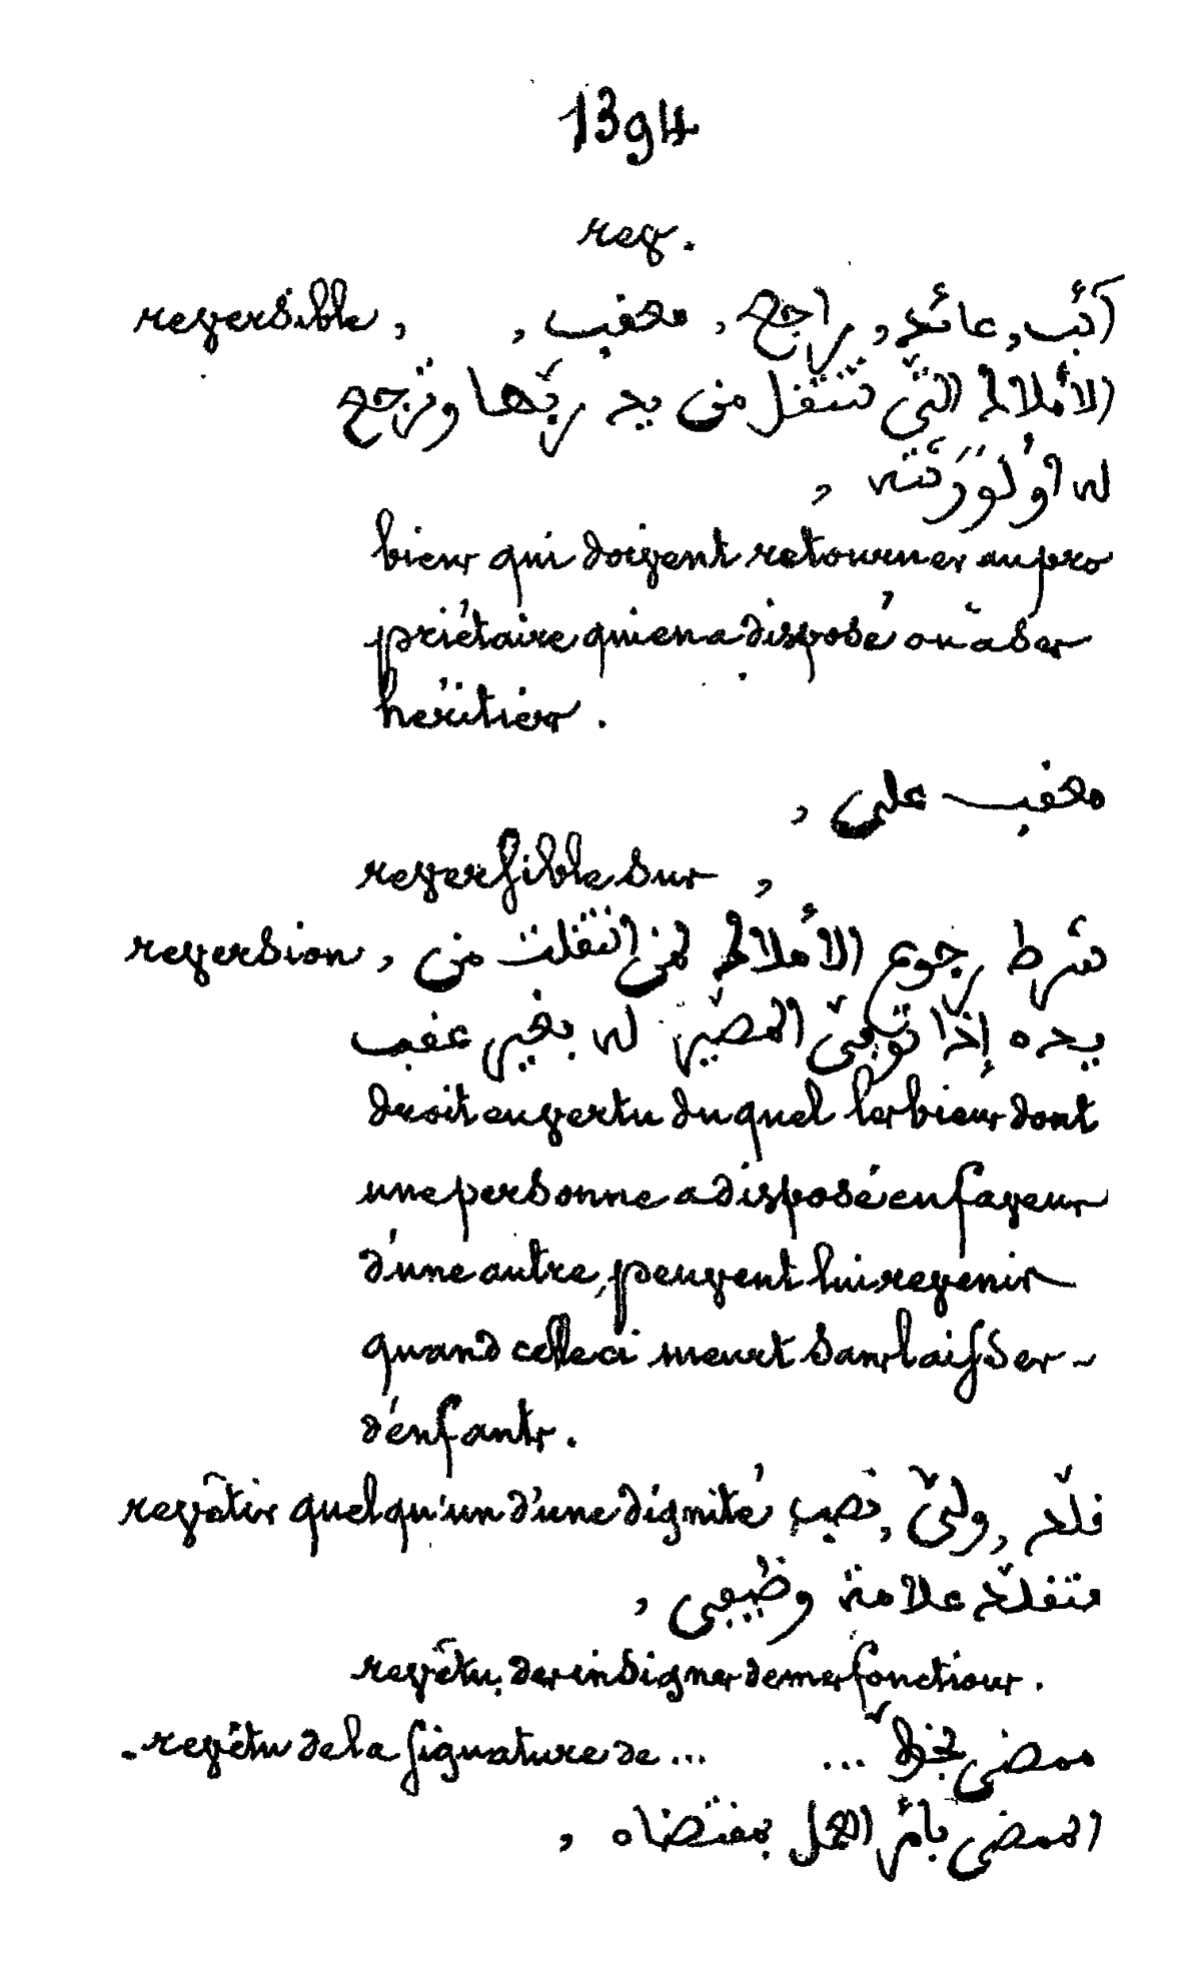 1394
rev.
reversible, آئب, عائد, راجع, معقب,
الأملاك التي تنتقل من يد ربّها وترجع
له أو لوَرَثَته,
biens qui doivent retourner au pro
priétaire qui en a disposé ou à ses
héritiers.
معقب على,
reversible sur,
reversion, شرط رجوع الأملاك لمن انتقلت من
يده إذا توفّى المصيّر له بغير عقب
droit en vertu du quel les biens dont
une personne a disposé en faveur
d'une autre, peuvent lui revenir
quand celle ci meurt sans laisser
d'enfants.
revêtir quelqu'un d'une dignité قلّد, ولّى, نصب,
متقلّد علامة وظيفي,
revêtu des insignes de mes fonctions.
revêtu de la signature de... ممضى بخطّ ...
الممضى بأمر العمل بمقتضاه,